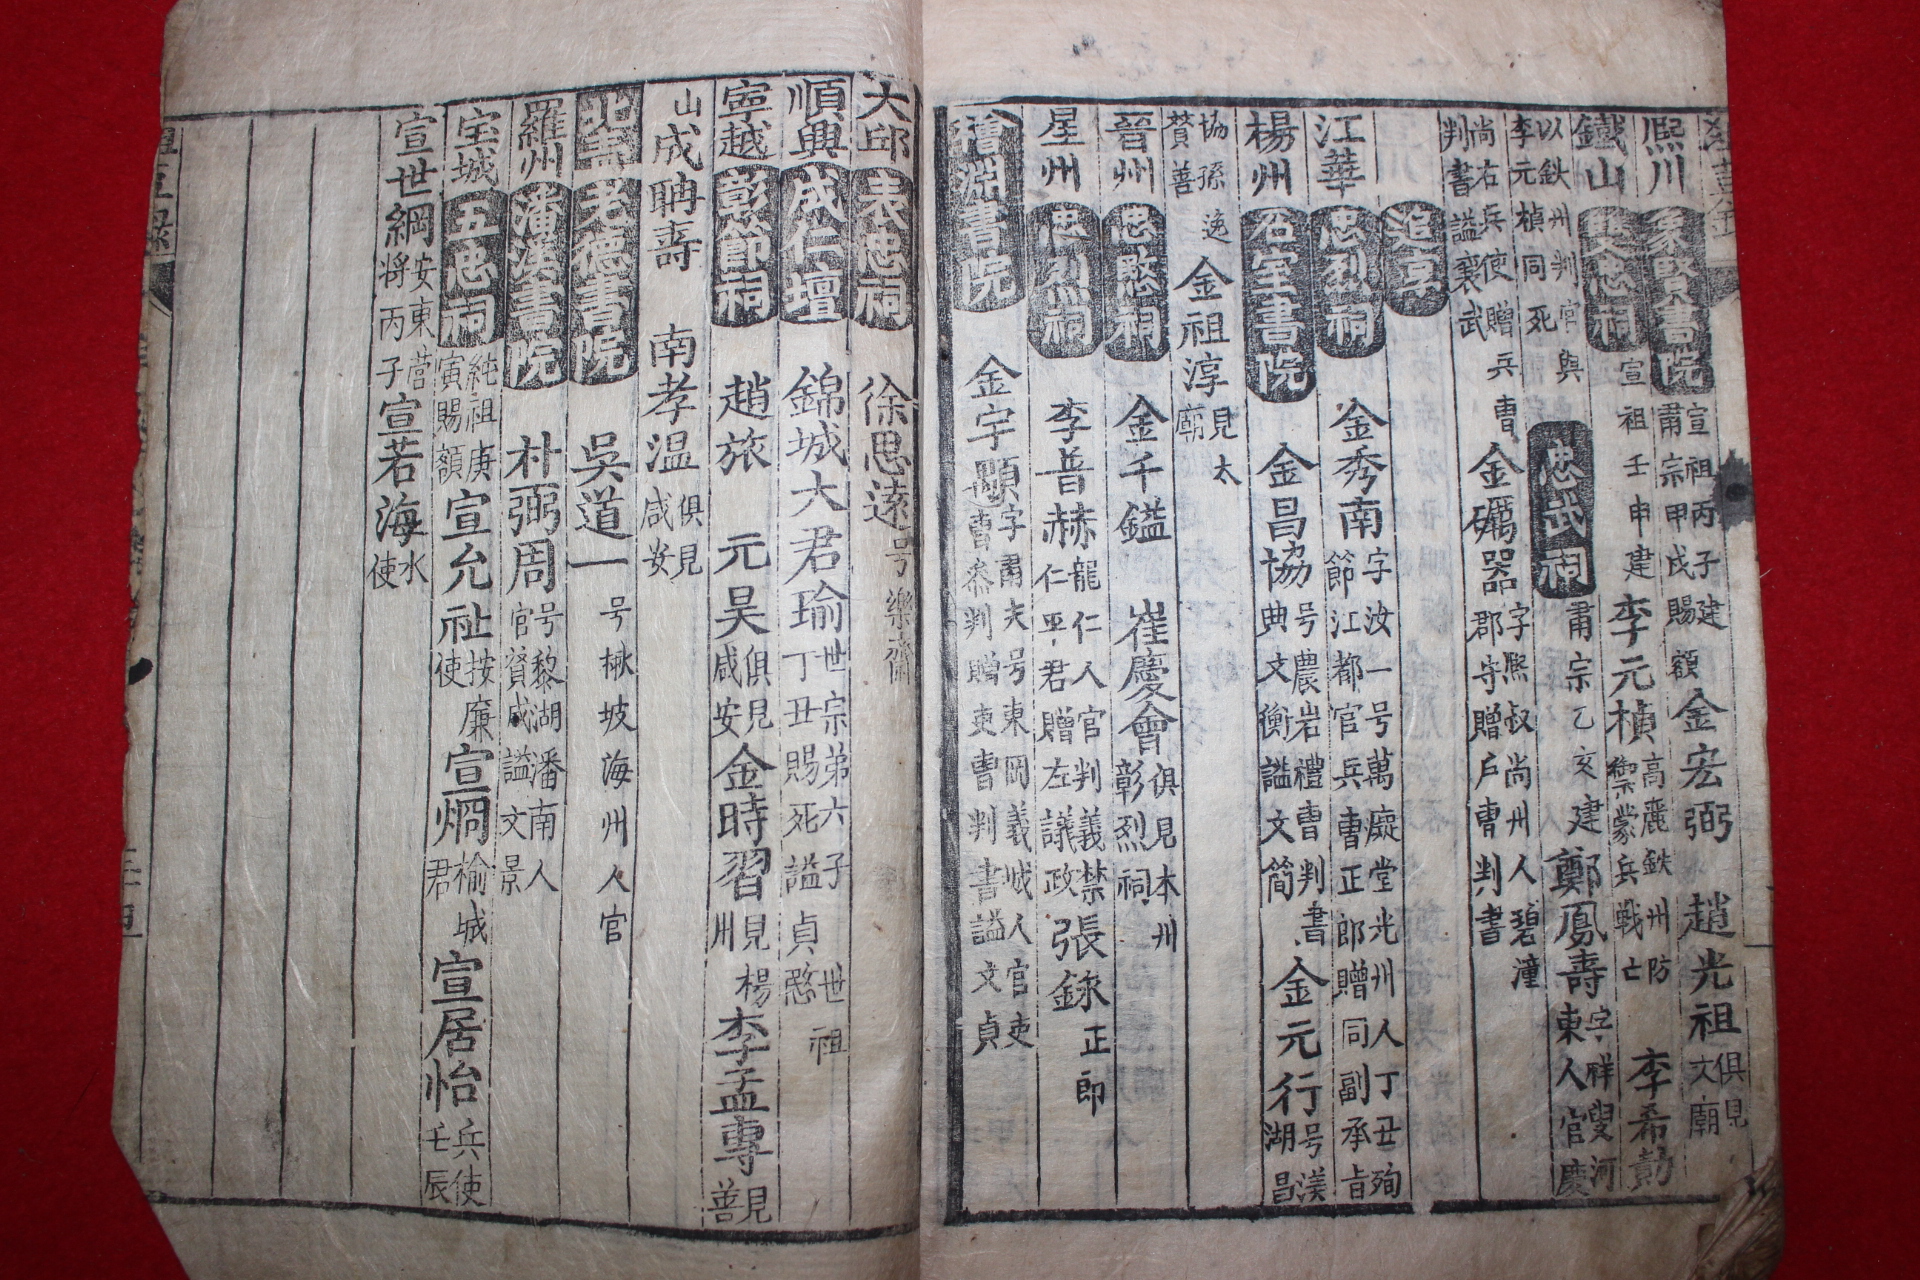 熙川 象賢書院 宣祖丙子建 肅宗甲戌賜額 金宏弼 趙光祖 俱見文廟
鐵山 雙忠祠 宣祖壬申建 李元楨 高麗鉄州防禦蒙兵戰亡 李希勣
以鉄州判官與李元楨同死 忠武祠 肅宗乙亥建 鄭鳳壽 字祥叟河東人官慶
尚右兵使贈兵曹判書謚襄武 金礪器 字熙叔尚州人碧潼郡守贈戶曹判書
追享
江華 忠烈祠 金秀南 字汝一号萬癡堂光州人丁丑殉節江都官兵曹正郎贈同副承旨
楊州 石室書院 金昌協 号農岩禮曹判書典文衡謚文簡 金元行 号渼湖昌
協孫贊善 逸 金祖淳 見太廟
晉州 忠愍祠 金千鎰 崔慶會 俱見本州彰烈祠
星州 忠烈祠 李普赫 龍仁人官判義禁仁平君贈左議政 張錄 正郎
檜淵書院 金宇顒 字肅夫号東岡義城人官吏曹參判贈吏曹判書謚文貞
大邱 表忠祠 徐思遠 号樂齋
順興 成仁壇 錦城大君瑜 世宗弟六子世祖丁丑賜死謚貞愍
寧越 彰節祠 趙旅 元昊 俱見咸安 金時習 見楊州 李孟專 見善
山 成聃壽 南孝溫 俱見咸安
北靑 老德書院 吳道一 号楸坡海州人官
羅州 潘溪書院 朴弼周 号黎湖潘南人官贊成謚文景
宝城 五忠祠 純祖庚寅賜額 宣允祉 按廉使 宣炯 榆城君 宣居怡 兵使壬辰
宣世綱 安東菅将丙子 宣若海 水使